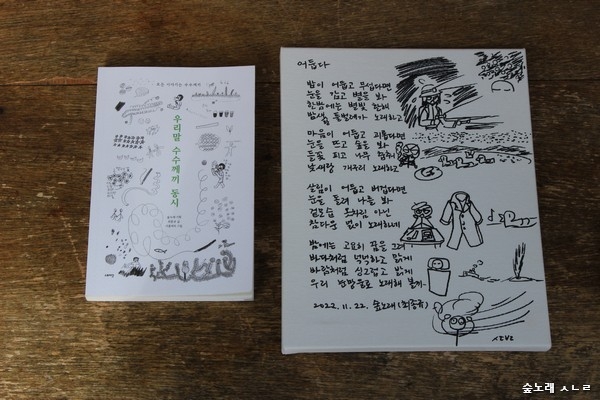 우리말 수수께끼 동시
어둡다
밤이 어둡고 무섭다면
눈을 감고 별을 봐
한밤에는 별빛 한해
밤새 풀벌레가 노래하고
마음이 어둡고 괴롭다면
눈을 뜨고 숲을 봐
들꽃 피고 나무 춤춰
낮새랑 개구리 노래하고
살림이 어둡고 버겁다면
눈을 돌려 나를 봐
겉모습 옷차림 아닌
참다운 빛이 노래하네
밤에는 고요히 꿈을 그려
바다처럼 넉넉하고 맑게
바람처럼 싱그럽고 밝게
우리 한빛으로 노래해 볼게
2022. 11. 22. 숲노래 (최종규)
숲노래 ㅅㄴㄹ